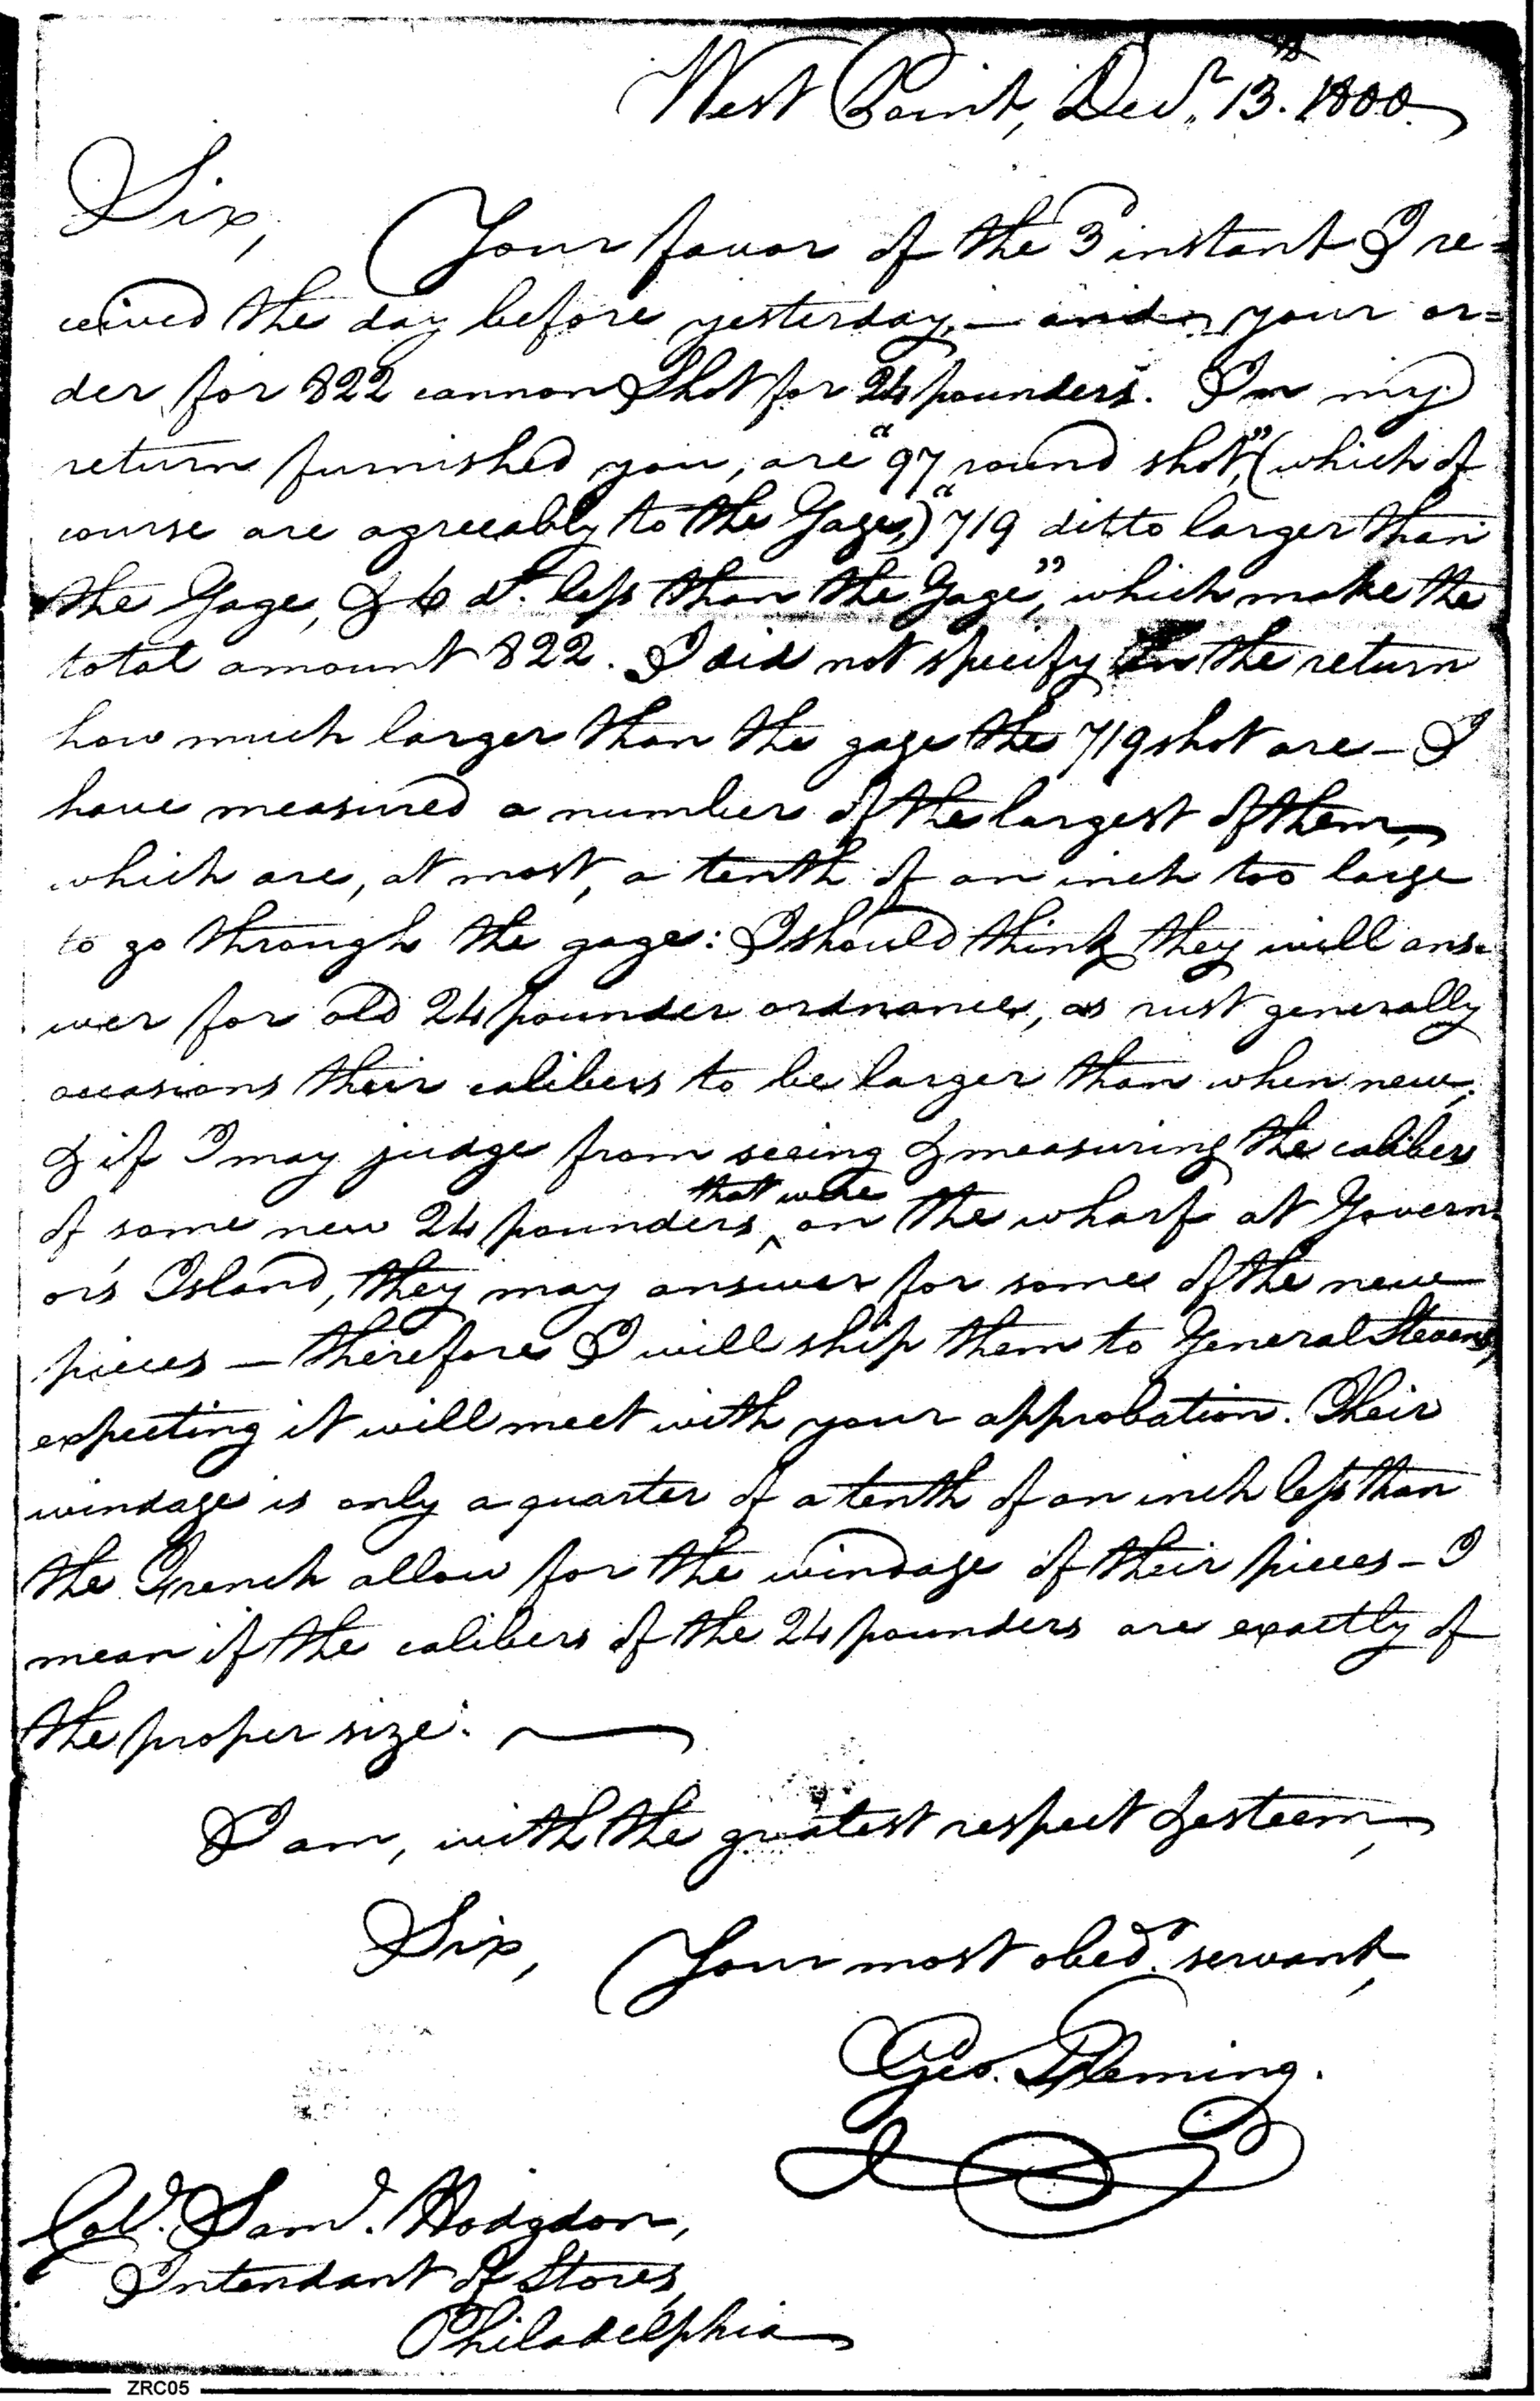 West Point, Decr. 13th. 1800.
Sir, Your favor of the 3d instant I re=
ceived the day before yesterday, — and your or=
der for 822 cannon Shot for 24 pounders. In my
return furnished you, are "97 round shot," (which of
course are agreeably to the Gage,) "719 ditto larger than
the Gage, & 6 do. less than the Gage", which make the
total amount 822. I did not specify in the return
how much larger than the gage the 719 shot are – I
have measured a number of the largest of them,
which are, at most, a tenth of an inch too large
to go through the gage: I should think they will ans-
wer for old 24 pounder ordnance, as rust generally
occasions their calibers to be larger than when new;
& if I may judge from seeing & measuring the calibers
of some new 24 pounders ^ that were on the wharf at Govern-
or's Island, they may answer for some of the new
pieces — therefore I will ship them to General Stevens,
expecting it will meet with your approbation. Their
windage is only a quarter of a tenth of an inch less than
the French allow for the windage of their pieces – I
mean if the calibers of the 24 pounders are exactly of
the proper size.
I am, with the greatest respect & esteem,
Sir, Your most obedt. servant,
Geo. Fleming.
Col. Saml. Hodgdon,
Intendant of Stores,
Philadelphia
ZRC05